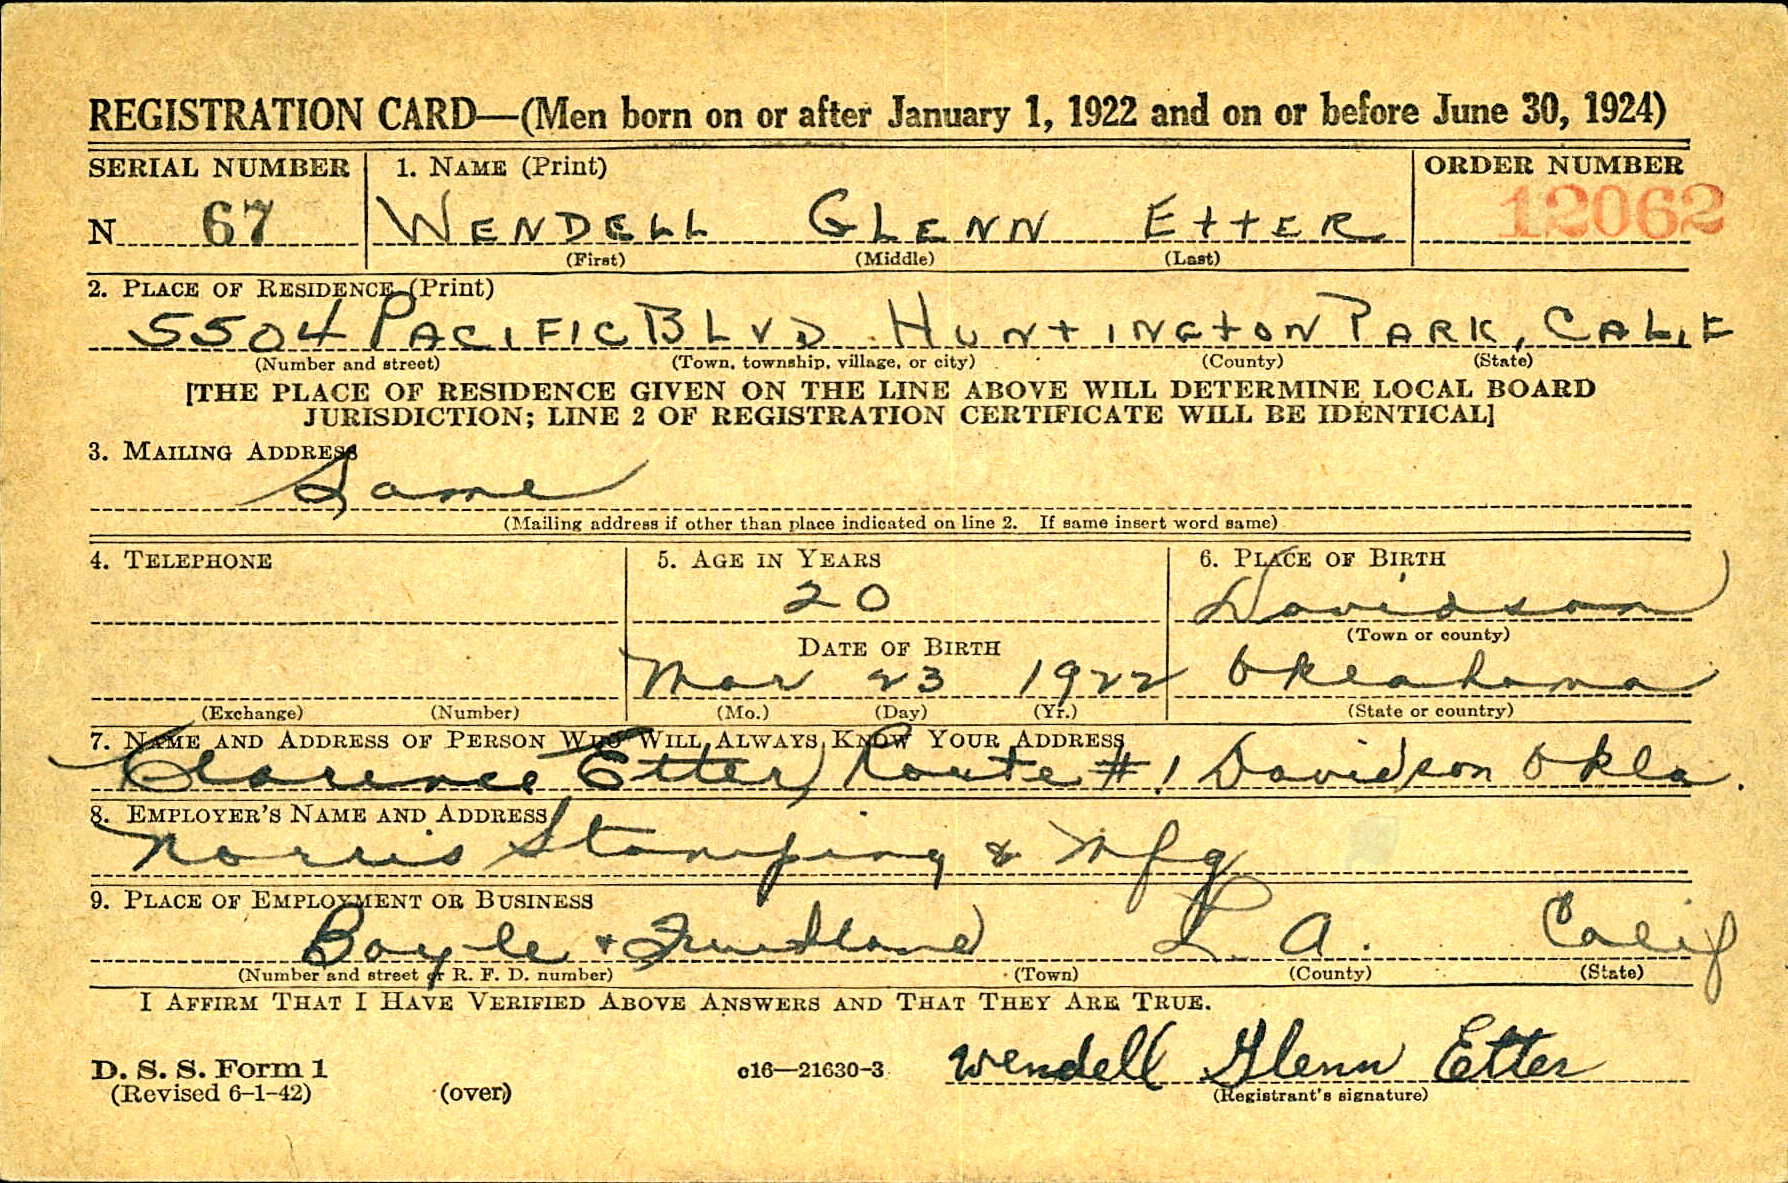 REGISTRATION CARD—(Men born on or after January 1, 1922 and on or before June 30, 1924)
SERIAL NUMBER 1. NAME (Print) ORDER NUMBER
N 67 WENDELL GLENN EttER 12062
(First) (Middle) (Last)
2. PLACE OF RESIDENCE (Print)
5504 PACIFIC BLVD HUNtINGtON PARK, CALIF
(Number and street) (Town, township, village, or city) (County) (State)
[THE PLACE OF RESIDENCE GIVEN ON THE LINE ABOVE WILL DETERMINE LOCAL BOARD
JURISDICTION; LINE 2 OF REGISTRATION CERTIFICATE WILL BE IDENTICAL]
3. MAILING ADDRESS
Same
(Mailing address if other than place indicated on line 2. If same insert word same)
4. TELEPHONE 5. AGE IN YEARS 6. PLACE OF BIRTH
20 Davidson
DATE OF BIRTH (Town or county)
Mar 23 1922 Oklahoma
(Exchange) (Number) (Mo.) (Day) (Yr.) (State or country)
7. NAME AND ADDRESS OF PERSON WHO WILL ALWAYS KNOW YOUR ADDRESS
Clarence Etter, Route #1 Davidson Okla.
8. EMPLOYER'S NAME AND ADDRESS
Norris Stamping & Mfg
9. PLACE OF EMPLOYMENT OR BUSINESS
Boyle & Fruitland L. A. Calif
(Number and street or R. F. D. number) (Town) (County) (State)
I AFFIRM THAT I HAVE VERIFIED ABOVE ANSWERS AND THAT THEY ARE TRUE.
D. S. S. Form 1 c16—21630-3 Wendell Glenn Etter
(Revised 6-1-42) (over) (Registrant's signature)